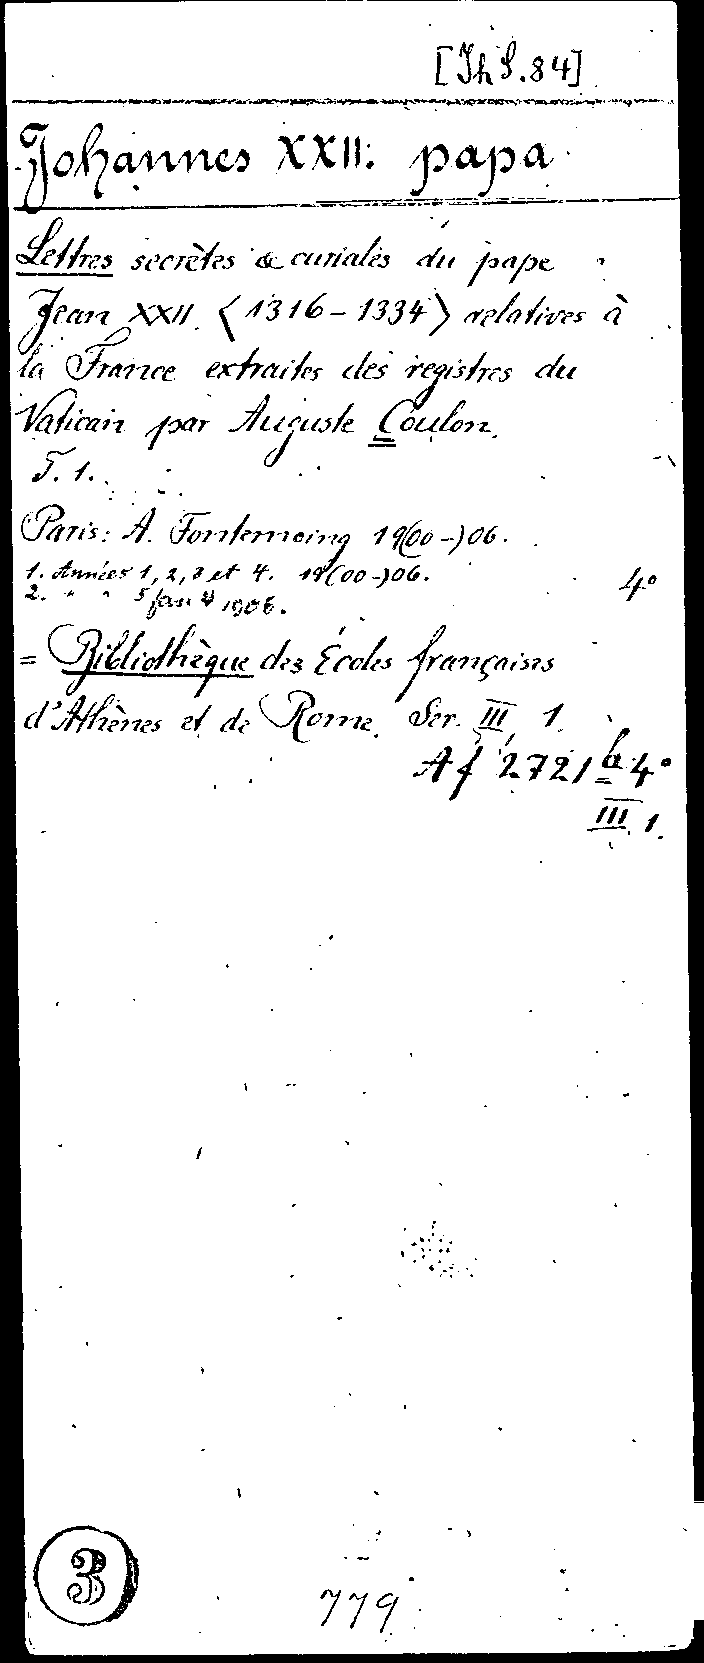 [Th S. 84]
Johannes XXII. papa
Lettres secrètes & curiales du pape
Jean XXII. <1316-1334> relatives à
la France extraites des registres du
Vatican par Auguste Coulon.
T. 1.
Paris: A. Fontemoing 19(00-)06.
1. Années 1, 2, 3 et 4. 19(00-)06. 4°
2. " " 5 1906.
= Bibliothèque des Écoles françaises
d'Athènes et de Rome. Ser. III, 1.
Af 2721 b 4°
III 1.
3
779